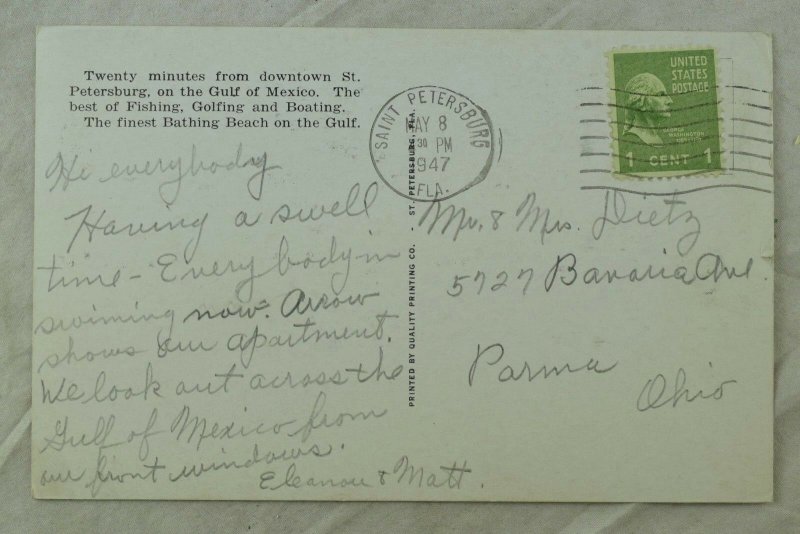 Twenty minutes from downtown St.
Petersburg, on the Gulf of Mexico. The
best of Fishing, Golfing and Boating.
The finest Bathing Beach on the Gulf.
Hi everybody
Having a swell
time - Everybody in
swiming now. Arrow
shows our apartment.
We look out across the
Gulf of Mexico from
our front windows.
Eleanor & Matt.
PRINTED BY QUALITY PRINTING CO. - ST. PETERSBURG, FLA.
SAINT PETERSBURG
MAY 8
30 PM
1947
FLA.
UNITED
STATES
POSTAGE
GEORGE
WASHINGTON
1 CENT 1
Mr. & Mrs. Dietz
5727 Bavaria Ave.
Parma
Ohio